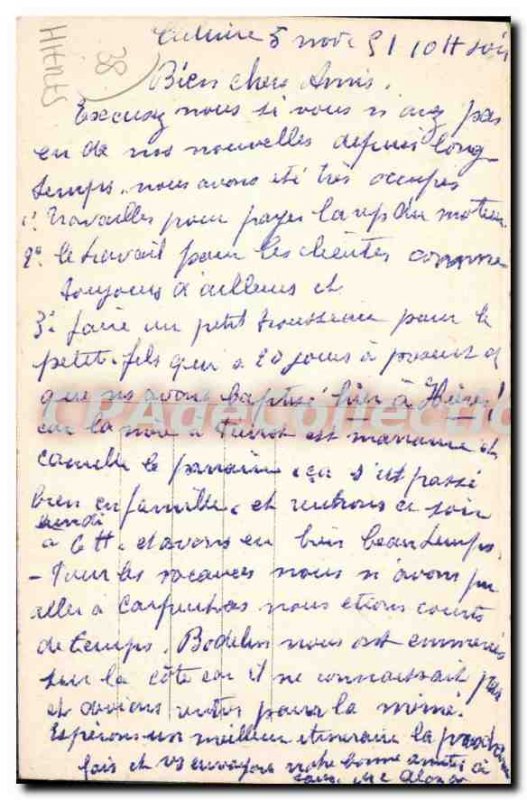 HYERES
38
5 nov. 51 10H soir
Bien chers Amis,
Excusez nous si vous n'avez pas
eu de nos nouvelles depuis long
temps, nous avons été très occupés
1° travailler pour payer la rep du moteur
2° le travail pour les clientes comme
toujours d'ailleurs et
3° faire un petit trousseau pour le
petit-fils qui a 20 jours à présent et
que ns avons baptisé hier à Hyères!
CPAdeCollection
car la mère à est marraine et
Camille le parrain, ça s'est passé
bien en famille, et rentrons ce soir
lundi
à 6H. et avons eu bien beau temps.
- Pour les vacances nous n'avons pu
aller à Carpentras nous etions courts
de temps. Bodelin nous ont emmenés
sur la côte car il ne connaissait pas
et devions rentrer pour la mémé.
Espérons un meilleur itinéraire la prochaine
fois et vs envoyons notre bonne amitié à
tous.